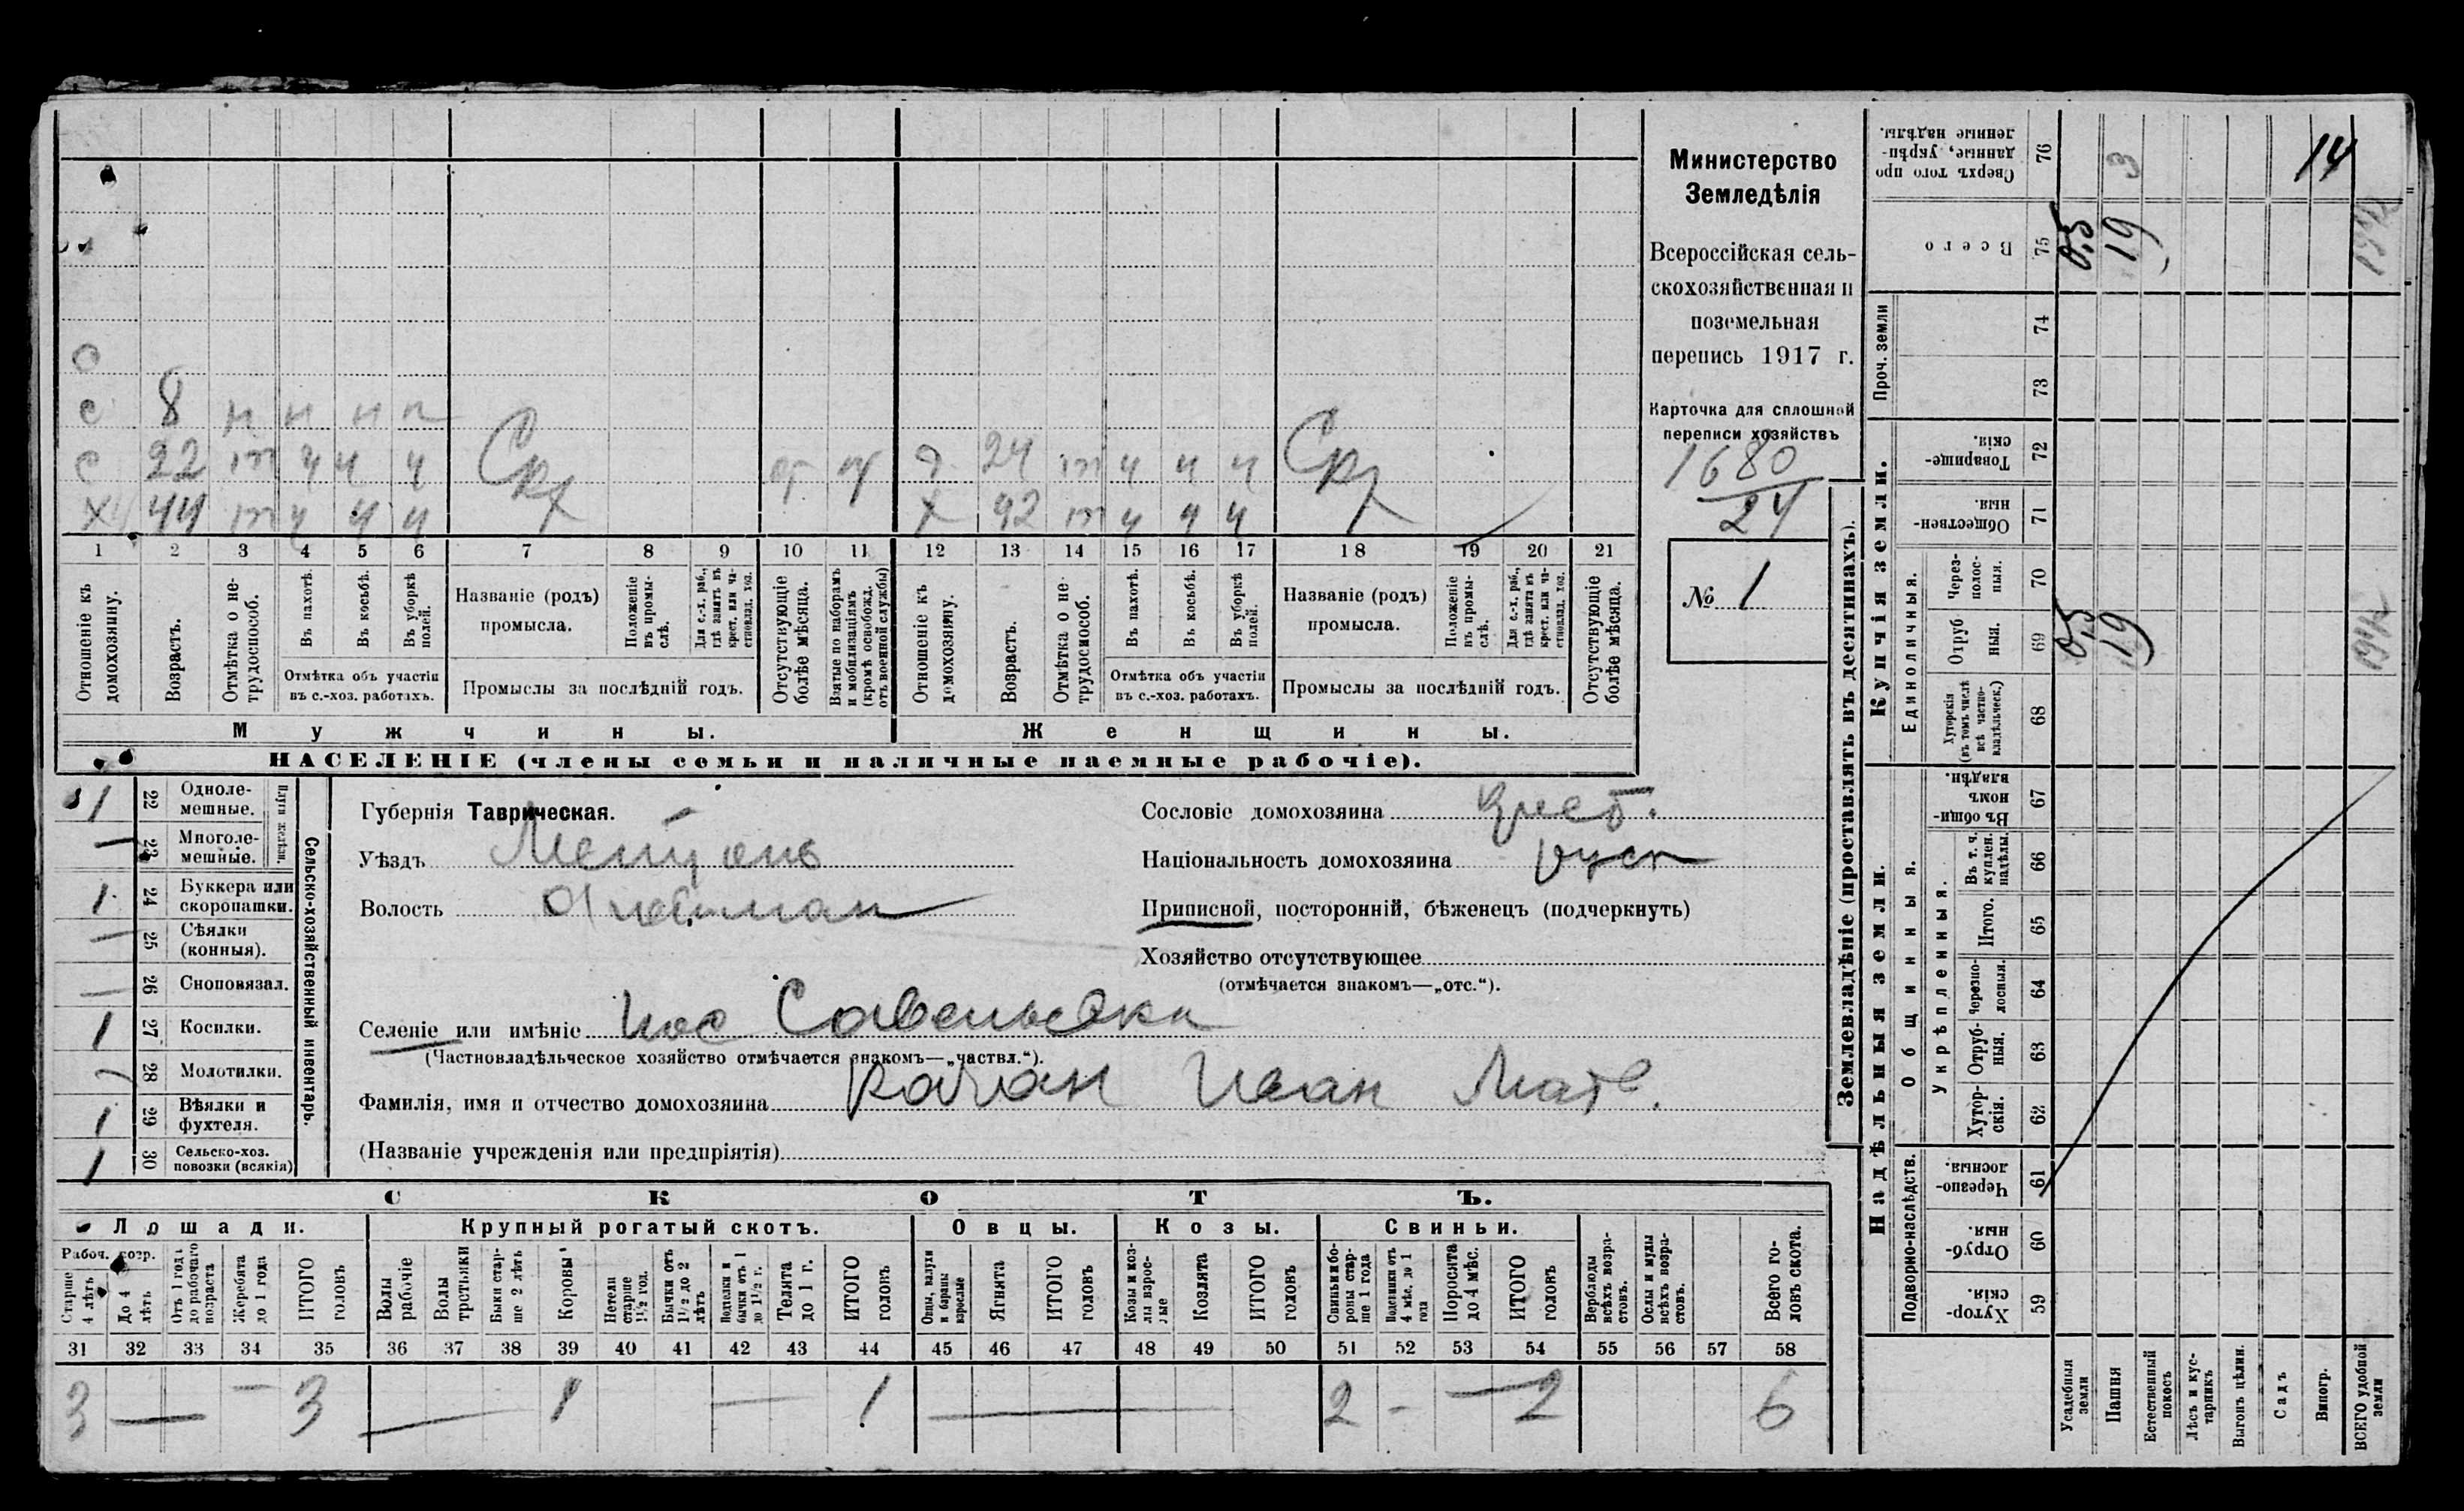 Министерство
Земледѣлія
Всероссійская сель-
скохозяйственная и
поземельная
перепись 1917 г.
Карточка для сплошной
переписи хозяйствъ
1680
24
№ 1
с
с 8 н н н н
с 22 т ч ч ч 24 т ч ч ч
х 44 т ч ч ч х 42 т ч ч ч
1 2 3 4 5 6 7 8 9 10 11 12 13 14 15 16 17 18 19 20 21
Отношеніе къ домохозяину.
Возрастъ.
Отмѣтка о не-трудоспособ.
Въ пахотѣ.
Въ косьбѣ.
Въ уборкѣ полей.
Отмѣтка объ участіи
въ с.-хоз. работахъ.
Названіе (родъ)
промысла.
Положеніе въ промы-слѣ.
Для с.-х. раб., гдѣ занятъ въ крест. или ча-стновлад. хоз.
Промыслы за послѣдній годъ.
Отсутствующіе болѣе мѣсяца.
Взятые по наборамъ и мобилизаціямъ (кромѣ освобожд. отъ военной службы)
Отношеніе къ домохозяину.
Возрастъ.
Отмѣтка о не-трудоспособ.
Въ пахотѣ.
Въ косьбѣ.
Въ уборкѣ полей.
Отмѣтка объ участіи
въ с.-хоз. работахъ.
Названіе (родъ)
промысла.
Положеніе въ промы-слѣ.
Для с.-х. раб., гдѣ занята въ крест. или ча-стновлад. хоз.
Промыслы за послѣдній годъ.
Отсутствующіе болѣе мѣсяца.
Мужчины. Женщины.
НАСЕЛЕНІЕ (члены семьи и наличные наемные рабочіе).
Сельско-хозяйственный инвентарь.
Плуги желѣзн.
1 22 Одноле-мешные.
— 23 Многоле-мешные.
1 24 Буккера или скоропашки.
— 25 Сѣялки (конныя).
— 26 Сноповязал.
1 27 Косилки.
— 28 Молотилки.
1 29 Вѣялки и фухтеля.
1 30 Сельско-хоз. повозки (всякія)
Губернія Таврическая.
Уѣздъ
Волость
Селеніе или имѣніе пос Савельевка
(Частновладѣльческое хозяйство отмѣчается знакомъ—„частвл.“).
Фамилія, имя и отчество домохозяина Иван Матв.
(Названіе учрежденія или предпріятія)
Сословіе домохозяина крест.
Національность домохозяина руск
Приписной, посторонній, бѣженецъ (подчеркнуть)
Хозяйство отсутствующее
(отмѣчается знакомъ—„отс.“).
СКОТЪ.
Лошади. Крупный рогатый скотъ. Овцы. Козы. Свиньи.
Рабоч. возр.
Старше 4 лѣтъ
До 4 лѣтъ
Отъ 1 года до рабочаго возраста
Жеребята до 1 года
ИТОГО головъ
Волы рабочіе
Волы третьяки
Быки стар-ше 2 лѣтъ
Коровы
Нетели старше 1½ год.
Бычки отъ 1½ до 2 лѣтъ
Подтелки и бычки отъ 1 до 1½ г.
Телята до 1 г.
ИТОГО головъ
Овцы, валухи и бараны взрослые
Ягнята
ИТОГО головъ
Козы и коз-лы взрос-лые
Козлята
ИТОГО головъ
Свиньи и бо-ровы стар-ше 1 года
Подсвинки отъ 4 мѣс. до 1 года
Поросята до 4 мѣс.
ИТОГО головъ
Верблюды всѣхъ возра-стовъ.
Ослы и мулы всѣхъ возра-стовъ.
Всего го-ловъ скота.
31 32 33 34 35 36 37 38 39 40 41 42 43 44 45 46 47 48 49 50 51 52 53 54 55 56 57 58
3 — — 3 — 1 — 1 — 2 - — 2 6
Землевладѣніе (проставлять въ десятинахъ).
Надѣльныя земли. Купчія земли. Проч. земли
Подворно-наслѣдств.
Общинныя.
Укрѣпленныя.
Единоличныя.
Хутор-скія. 59
Отруб-ныя. 60
Черезпо-лосныя. 61
Хутор-скія. 62
Отруб-ныя. 63
Черезпо-лосныя. 64
Итого. 65
Въ т. ч. куплен. надѣлы. 66
Въ общин-номъ владѣн. 67
Хуторскія (въ томъ числѣ всѣ частно-владѣльческ.) 68
Отруб-ныя. 69
Через-полос-ныя. 70
Обществен-ныя. 71
Товарище-скія. 72
73
74
Всего 75
Сверхъ того про-данные, укрѣп-ленные надѣлы. 76
Усадебныя земли 0,5 0,5
Пашня 19 19 3
Естественный покосъ
Лѣсъ и кус-тарникъ
Выгонъ цѣлин.
Садъ
Виногр.
ВСЕГО удобной земли 19½ 19½
14